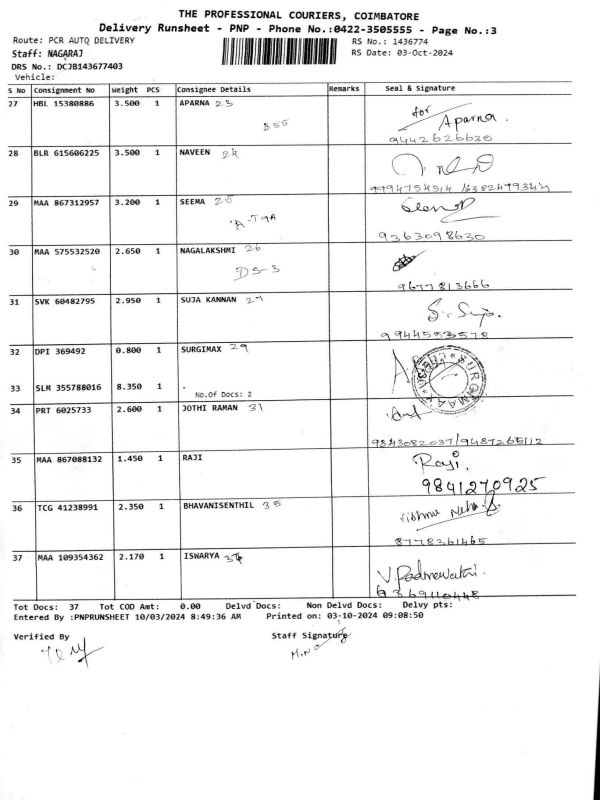 THE PROFESSIONAL COURIERS, COIMBATORE
Delivery Runsheet - PNP - Phone No.:0422-3505555 - Page No.:3
Route: PCR AUTO DELIVERY RS No.: 1436774
Staff: NAGARAJ RS Date: 03-Oct-2024
DRS No.: DCJB143677403
Vehicle:
S No Consignment No Weight PCS Consignee Details Remarks Seal & Signature
27 HBL 15380886 3.500 1 APARNA 23 for Aparna.
B55
9442626630
28 BLR 615606225 3.500 1 NAVEEN 24
9994754514 /6382479344
29 MAA 867312957 3.200 1 SEEMA 25
A-T9A
9363098630
30 MAA 575532520 2.650 1 NAGALAKSHMI 26
DS-3
9677813666
31 SVK 60482795 2.950 1 SUJA KANNAN 27
9944553578
32 DPI 369492 0.800 1 SURGIMAX 29 SURGIMAX
33 SLM 355788016 8.350 1 .
No.Of Docs: 2
34 PRT 6025733 2.600 1 JOTHI RAMAN 31
9843082037/9487265112
35 MAA 867088132 1.450 1 RAJI Raji.
9841270925
36 TCG 41238991 2.350 1 BHAVANISENTHIL 35 Vishnu
8778361465
37 MAA 109354362 2.170 1 ISWARYA V. Padmavathi.
9369110448
Tot Docs: 37 Tot COD Amt: 0.00 Delvd Docs: Non Delvd Docs: Delvy pts:
Entered By :PNPRUNSHEET 10/03/2024 8:49:36 AM Printed on: 03-10-2024 09:08:50
Verified By Staff Signature